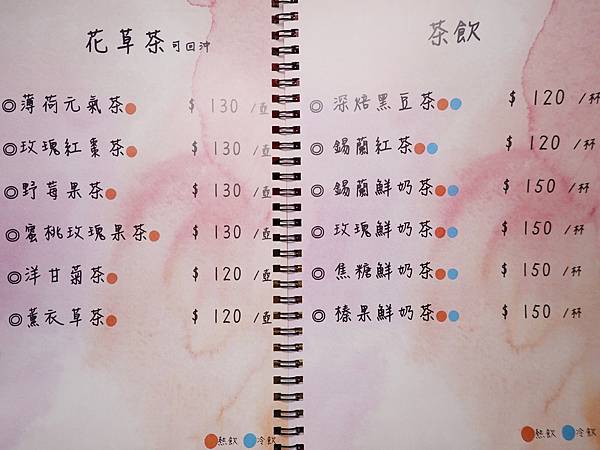 花草茶 可回沖
◎薄荷元氣茶 $ 130 /壺
◎玫瑰紅棗茶 $ 130 /壺
◎野莓果茶 $ 130 /壺
◎蜜桃玫瑰果茶 $ 130 /壺
◎洋甘菊茶 $ 120 /壺
◎薰衣草茶 $ 120 /壺
熱飲 冷飲
茶飲
◎深焙黑豆茶 $ 120 /杯
◎錫蘭紅茶 $ 120 /杯
◎錫蘭鮮奶茶 $ 150 /杯
◎玫瑰鮮奶茶 $ 150 /杯
◎焦糖鮮奶茶 $ 150 /杯
◎榛果鮮奶茶 $ 150 /杯
熱飲 冷飲